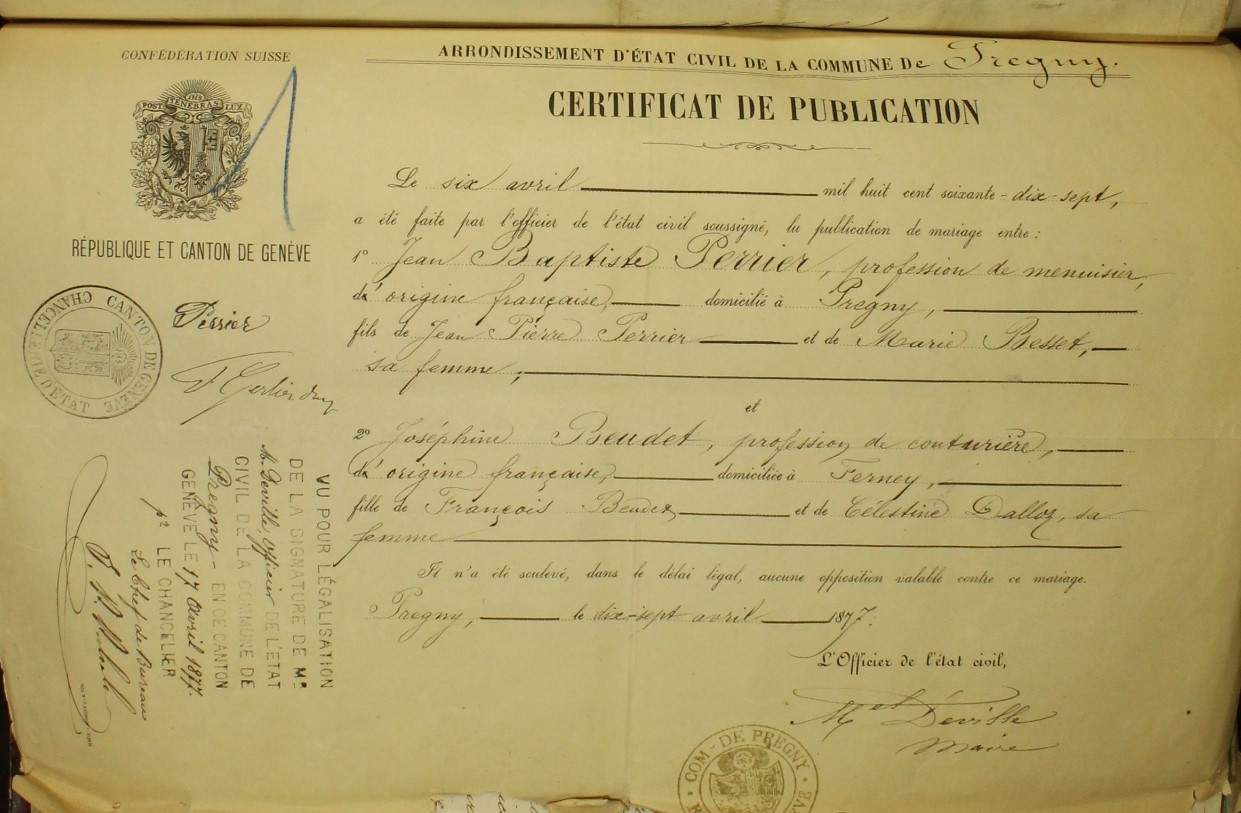 CONFÉDÉRATION SUISSE
POST TENEBRAS LUX
RÉPUBLIQUE ET CANTON DE GENÈVE
ARRONDISSEMENT D'ÉTAT CIVIL DE LA COMMUNE De Pregny.
CERTIFICAT DE PUBLICATION
Le six avril mil huit cent soixante-dix-sept,
a été faite par l'officier de l'état civil soussigné, la publication de mariage entre :
1° Jean Baptiste Perrier, profession de menuisier,
d'origine française, domicilié à Pregny,
fils de Jean Pierre Perrier et de Marie Besset,
sa femme ;
et
2° Joséphine Beudet, profession de couturière,
d'origine française, domiciliée à Ferney,
fille de François Beudet et de Célestine Dalloz, sa
femme
Il n'a été soulevé, dans le délai légal, aucune opposition valable contre ce mariage.
Pregny, le dix-sept avril 1877.
L'Officier de l'état civil,
Mel Déville
Maire
COM - DE PREGNY
CHANCELLERIE D'ÉTAT CANTON DE GENÈVE
Perrier
VU POUR LÉGALISATION
DE LA SIGNATURE DE Mr
M. Deville, Officier DE L'ETAT
CIVIL DE LA COMMUNE DE
Pregny - EN CE CANTON
GENÈVE LE 17 Avril 1877.
pr LE CHANCELIER
Le Chef de Bureau